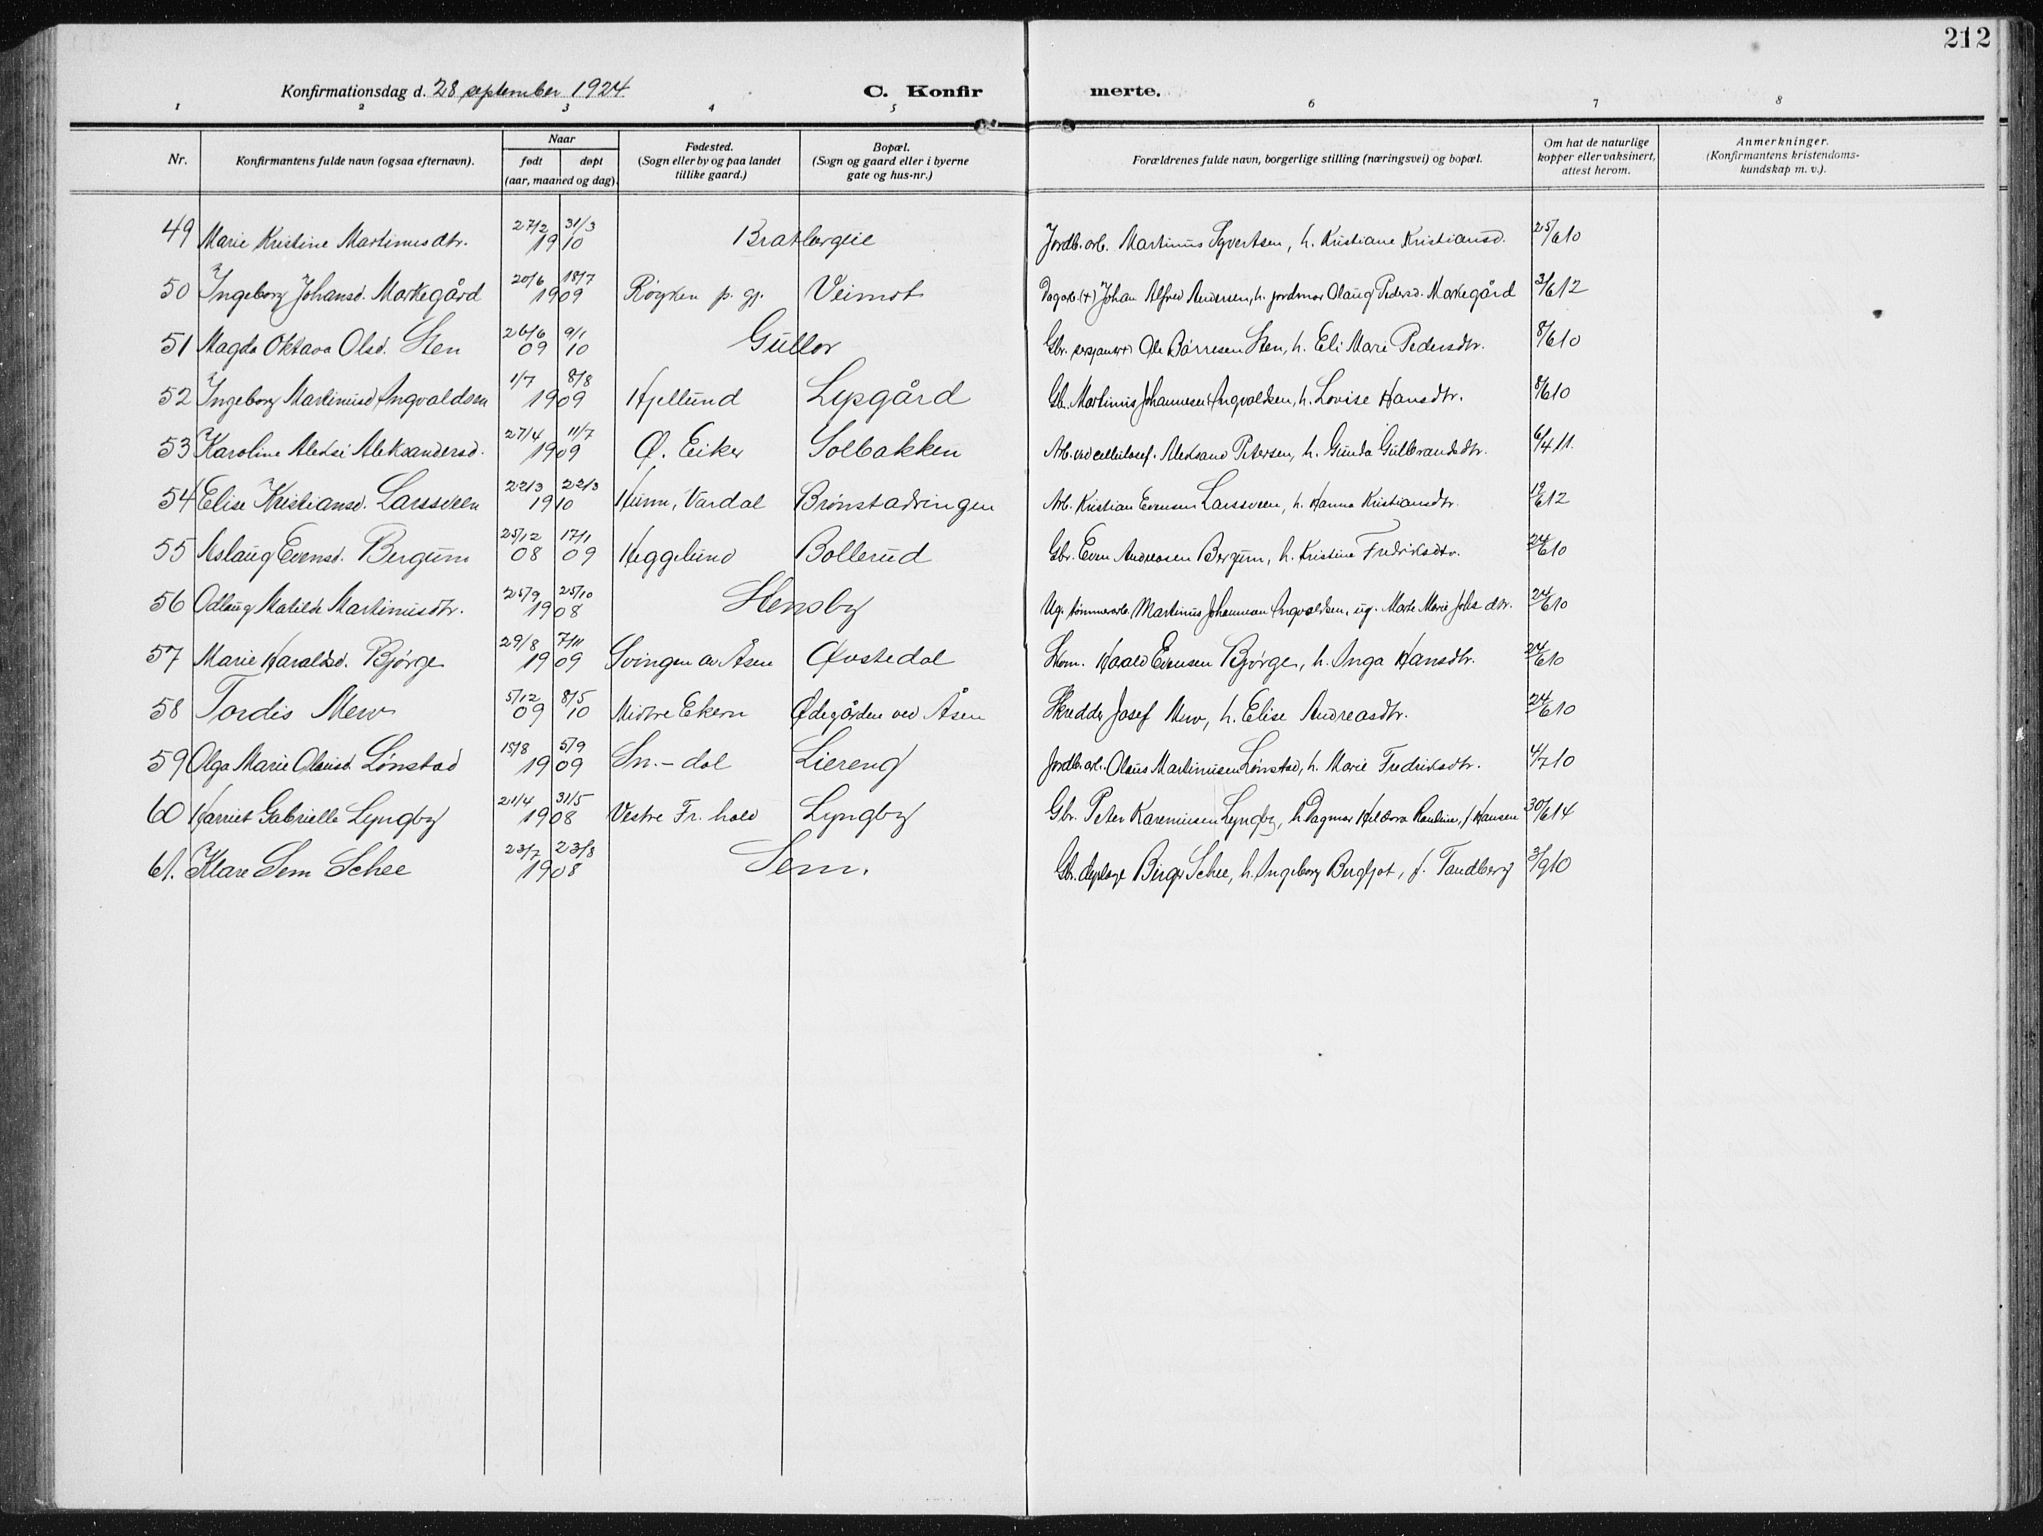 212
Konfirmationsdag d. 28 september 1924 C. Konfir merte.
1 2 3 4 5 6 7 8
Nr. Konfirmantens fulde navn (ogsaa efternavn). Naar født døpt (aar, maaned og dag). Fødested. (Sogn eller by og paa landet tillike gaard.) Bopæl. (Sogn og gaard eller i byerne gate og hus-nr.) Forældrenes fulde navn, borgerlige stilling (næringsvei) og bopæl. Om hat de naturlige kopper eller vaksinert, attest herom. Anmerkninger. (Konfirmantens kristendoms-kundskap m. v.).
49 Marie Kristine Martinusdtr. 27/2 31/3 1910 Bratbergeie Jordb. arb. Martinus Syvertsen, h. Kristiane Kristiansd. 25/6 10
50 Ingeborg Johansd. Markegård 20/6 18/7 1909 Røyken p. gj. Veimot Dagarb. (+) Johan Alfred Andersen, h. jordmor Olaug Pedersd. Markegård 3/6 12
51 Magda Oktava Olsd. Sten 26/6 09 9/1 10 Gullor Gbr. Ole Børresen Sten, h. Eli Marie Pedersdtr. 8/6 10
52 Ingeborg Martinusd Ingvaldsen 1/7 8/8 1909 Hjellund Lysgård Gb. Martinus Johannesen Ingvaldsen, h. Lovise Hansdtr. 8/6 10
53 Karoline Aleksandersd. 27/4 11/7 1909 Ø. Eiker Solbakken Arb. ved cellulosef. Aleksand Petersen, h. Gunda Gulbrandsdtr. 6/4 11.
54 Elise Kristiansd. Larssveen 22/3 22/3 1910 Hunn, Vardal Brønstadringen Arb. Kristian Evensen Larssveen, h. Hanna Kristiansdtr. 19/6 12
55 Aslaug Evensd. Bergum 25/12 08 17/1 09 Heggelund Bollerud Gbr. Even Andreasen Bergum, h. Kristine Fredriksdtr. 24/6 10
56 Odlaug Matilde Martinusdtr. 25/9 25/10 1908 Stensby Ug. tømmerarb. Martinus Johannesen Ingvaldsen, ug. Marte Marie Johs dtr. 24/6 10
57 Marie Haraldsd. Bjørge 29/8 7/11 1909 Svingen av Åsen Qvstedal Skom. Harald Evensen Bjørge, h. Inga Hansdtr. 24/6 10
58 Tordis Mew 5/12 09 8/5 10 Midtre Ekern Ødegården ved Åsen Skredder Josef Mew, h. Elise Andreasdtr. 24/6 10
59 Olga Marie Olausd. Lønstad 15/8 5/9 1909 Sn.-dal Liereng Jordb. arb. Olaus Martinusen Lønstad, h. Marie Fredriksdtr. 4/7 10
60 Harriet Gabrielle Lyngby 21/4 31/5 1908 Vestre Fr. hald Lyngby Gbr. Peter Karenusen Lyngby, h. Dagmar Haldora Pauline, f. Hansen 30/6 14
61. Klare Sem Schee 23/7 23/8 1908 Sem. Gbr. dyrlæge Birger Schee, h. Ingeborg Bergljot, f. Tandberg 3/9 10